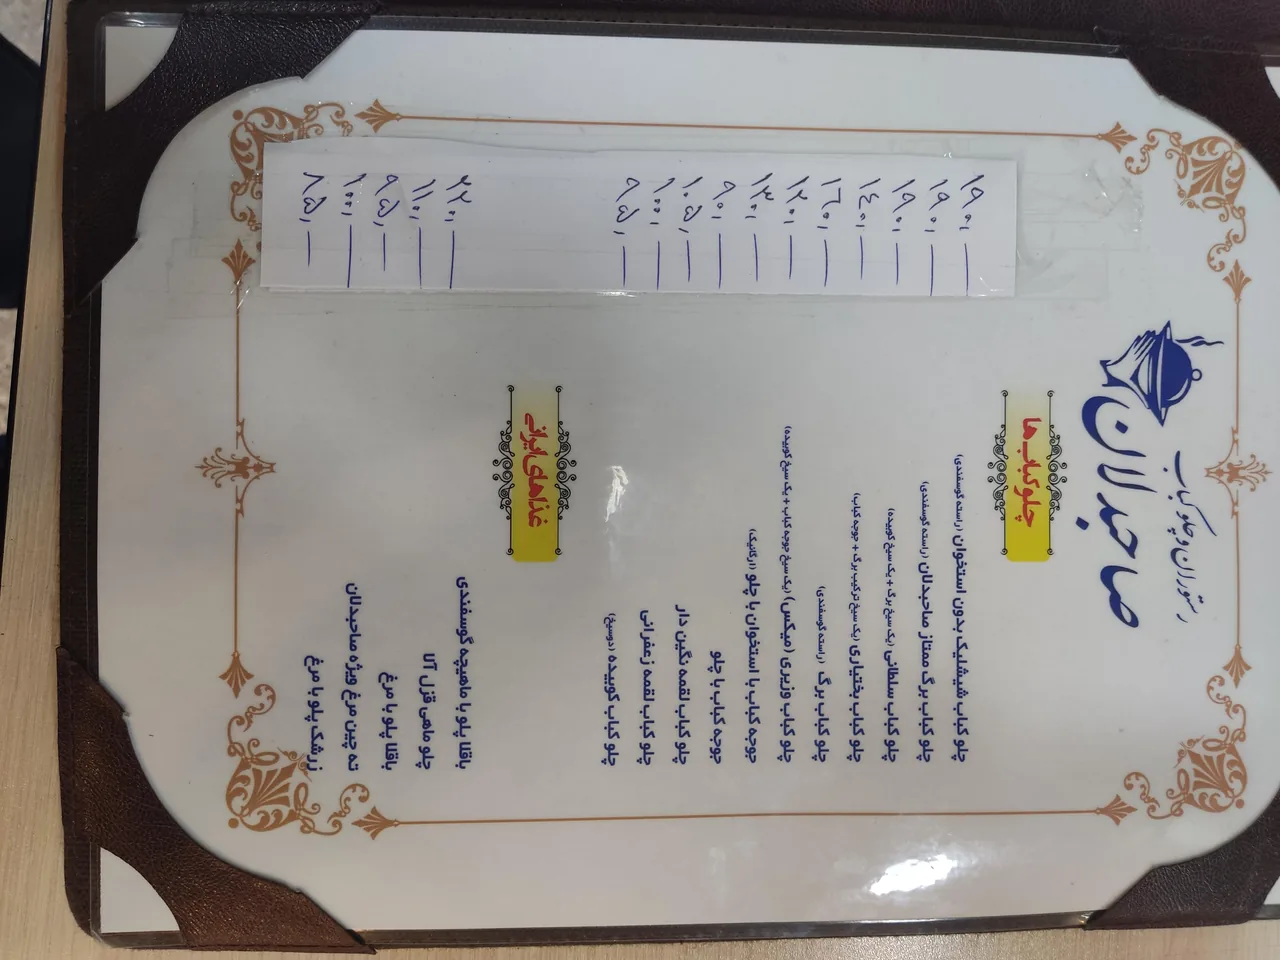 رستوران و چلوکباب
صاحبدلان
چلوکباب ها
چلو کباب شیشلیک بدون استخوان (راسته گوسفندی) ۱۹۰,—
چلو کباب برگ ممتاز صاحبدلان (راسته گوسفندی) ۱۹۰,—
چلو کباب سلطانی (یک سیخ برگ + یک سیخ کوبیده) ۱۹۰,—
چلو کباب بختیاری (یک سیخ ترکیب برگ + جوجه کباب) ۱۴۰,—
چلو کباب برگ (راسته گوسفندی) ۱۶۰,—
چلو کباب وزیری (میکس) (یک سیخ جوجه کباب + یک سیخ کوبیده) ۱۲۰,—
جوجه کباب با استخوان با چلو (ارگانیک) ۱۳۰,—
جوجه کباب با چلو ۹۰,—
چلو کباب لقمه نگین دار ۱۰۵,—
چلو کباب لقمه زعفرانی ۱۰۰,—
چلو کباب کوبیده (دوسیخ) ۹۵,—
غذاهای ایرانی
باقلا پلو با ماهیچه گوسفندی ۲۲۰,—
چلو ماهی قزل آلا ۱۱۰,—
باقلا پلو با مرغ ۹۵,—
ته چین مرغ ویژه صاحبدلان ۱۰۰,—
زرشک پلو با مرغ ۸۵,—